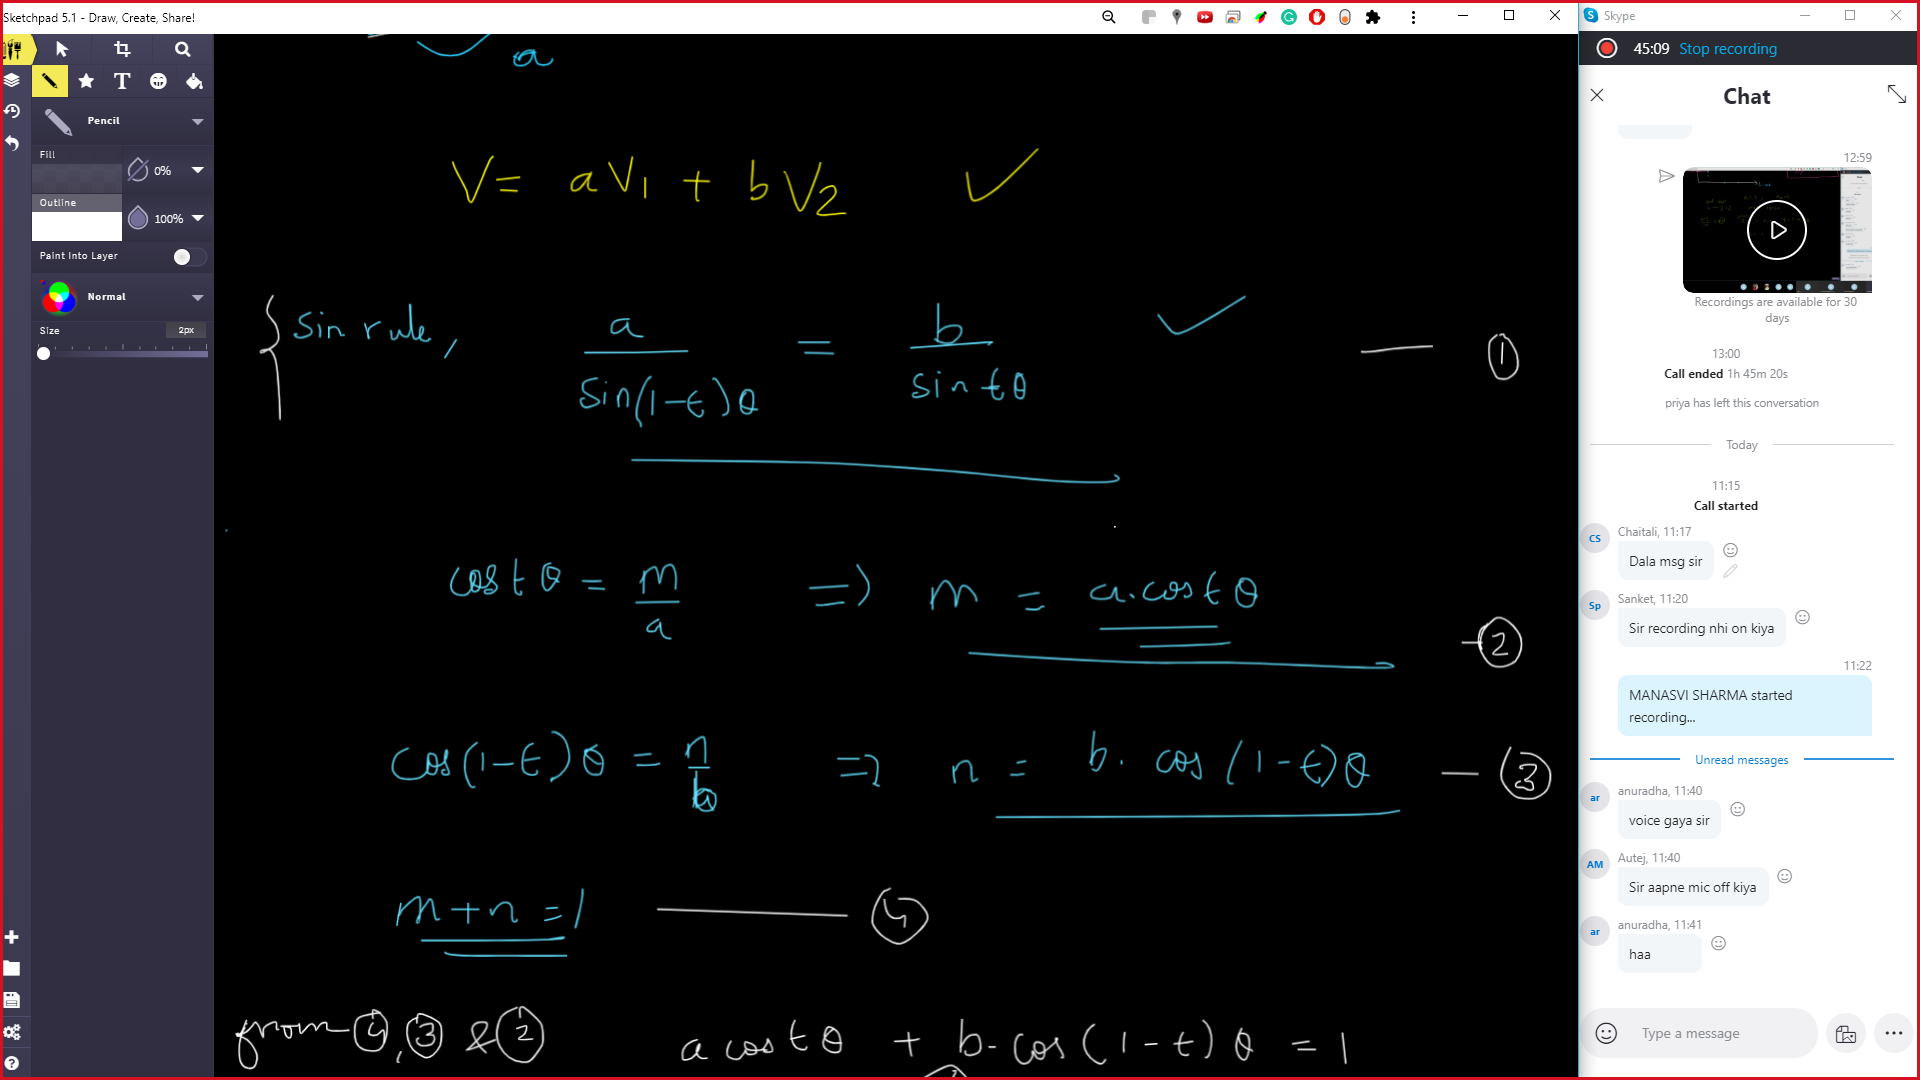 Sketchpad 5.1 - Draw, Create, Share!
Pencil
Fill
0%
Outline
100%
Paint Into Layer
Normal
Size
2px
a
V = a V1 + b V2 ✓
{ Sin rule, a / Sin(1-t)θ = b / sin tθ ✓ — ①
cos tθ = m / a => m = a.cos tθ - ②
cos(1-t)θ = n / b => n = b. cos (1-t)θ — ③
m+n=1 — ④
from ④, ③ & ② a cos tθ + b. cos (1-t) θ = 1
Skype
45:09 Stop recording
Chat
12:59
Recordings are available for 30
days
13:00
Call ended 1h 45m 20s
priya has left this conversation
Today
11:15
Call started
CS
Chaitali, 11:17
Dala msg sir
Sp
Sanket, 11:20
Sir recording nhi on kiya
11:22
MANASVI SHARMA started
recording...
Unread messages
ar
anuradha, 11:40
voice gaya sir
AM
Autej, 11:40
Sir aapne mic off kiya
ar
anuradha, 11:41
haa
Type a message